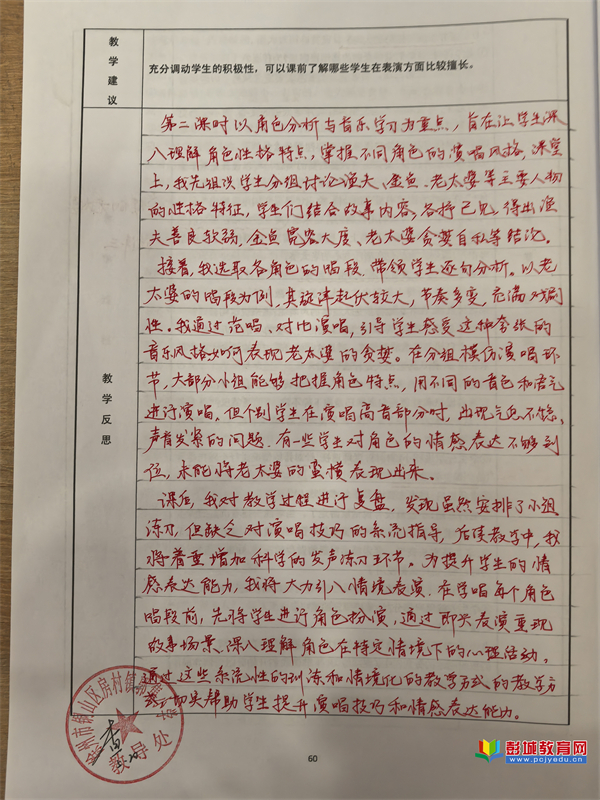 教学建议
充分调动学生的积极性，可以课前了解哪些学生在表演方面比较擅长。
教学反思
第二课时以角色分析与音乐学习为重点，旨在让学生深
入理解角色性格特点，掌握不同角色的演唱风格，课堂
上，我先组织学生分组讨论渔夫、金鱼、老太婆等主要人物
的性格特征，学生们结合故事内容，各抒己见，得出渔
夫善良软弱，金鱼宽容大度、老太婆贪婪自私等结论。
接着，我选取各角色的唱段，带领学生逐句分析。以老
太婆的唱段为例，其旋律起伏较大，节奏多变，充满戏剧
性。我通过范唱、对比演唱，引导学生感受这种夸张的
音乐风格如何表现老太婆的贪婪。在分组模仿演唱环
节，大部分小组能够把握角色特点，用不同的音色和语气
进行演唱，但个别学生在演唱高音部分时，出现气息不稳，
声音发紧的问题，有一些学生对角色的情感表达不够到
位，未能将老太婆的蛮横表现出来。
课后，我对教学过程进行复盘，发现虽然安排了小组
练习，但缺乏对演唱技巧的系统指导，后续教学中，我
将着重增加科学的发声练习环节。为提升学生的情
感表达能力，我将大力引入情境表演，在学唱每个角色
唱段前，先将学生进行角色扮演，通过即兴表演重现
故事场景，深入理解角色在特定情境下的心理活动，
通过这些系统性的训练和情境化的教学方式的教学方
式，切实帮助学生提升演唱技巧和情感表达能力。
徐州市铜山区房村镇
教导处
60
彭城教育网
www.pcjyedu.com